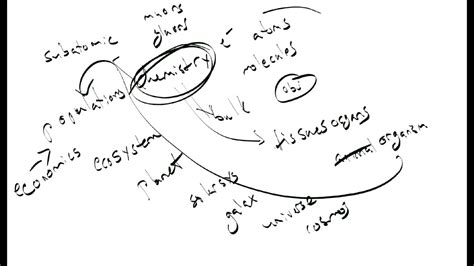 subatomic
muons
gluons
e-
atoms
molecules
chemistry
obj
bulk
populations
tissues organs
organism
economics
ecosystem
planet
solar sys
galax
universe
cosmos